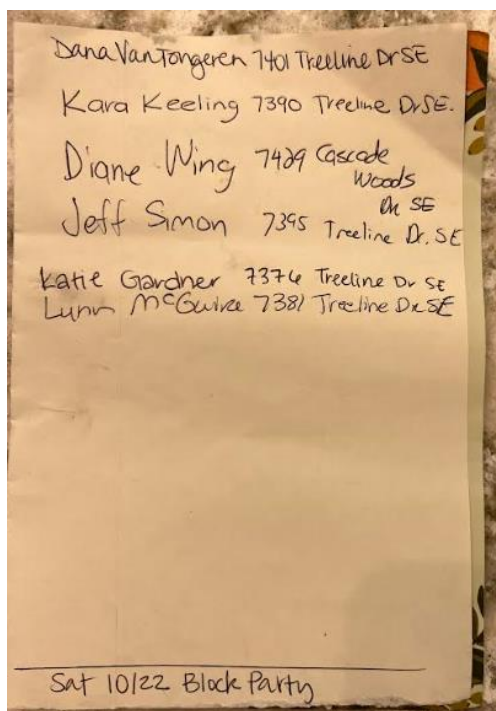 Dana VanTongeren 7401 Treeline Dr SE
Kara Keeling 7390 Treeline Dr SE.
Diane Wing 7429 Cascade
Woods
Dr SE
Jeff Simon 7395 Treeline Dr. SE
Katie Gardner 7376 Treeline Dr SE
Lynn McGuire 7381 Treeline Dr SE
Sat 10/22 Block Party